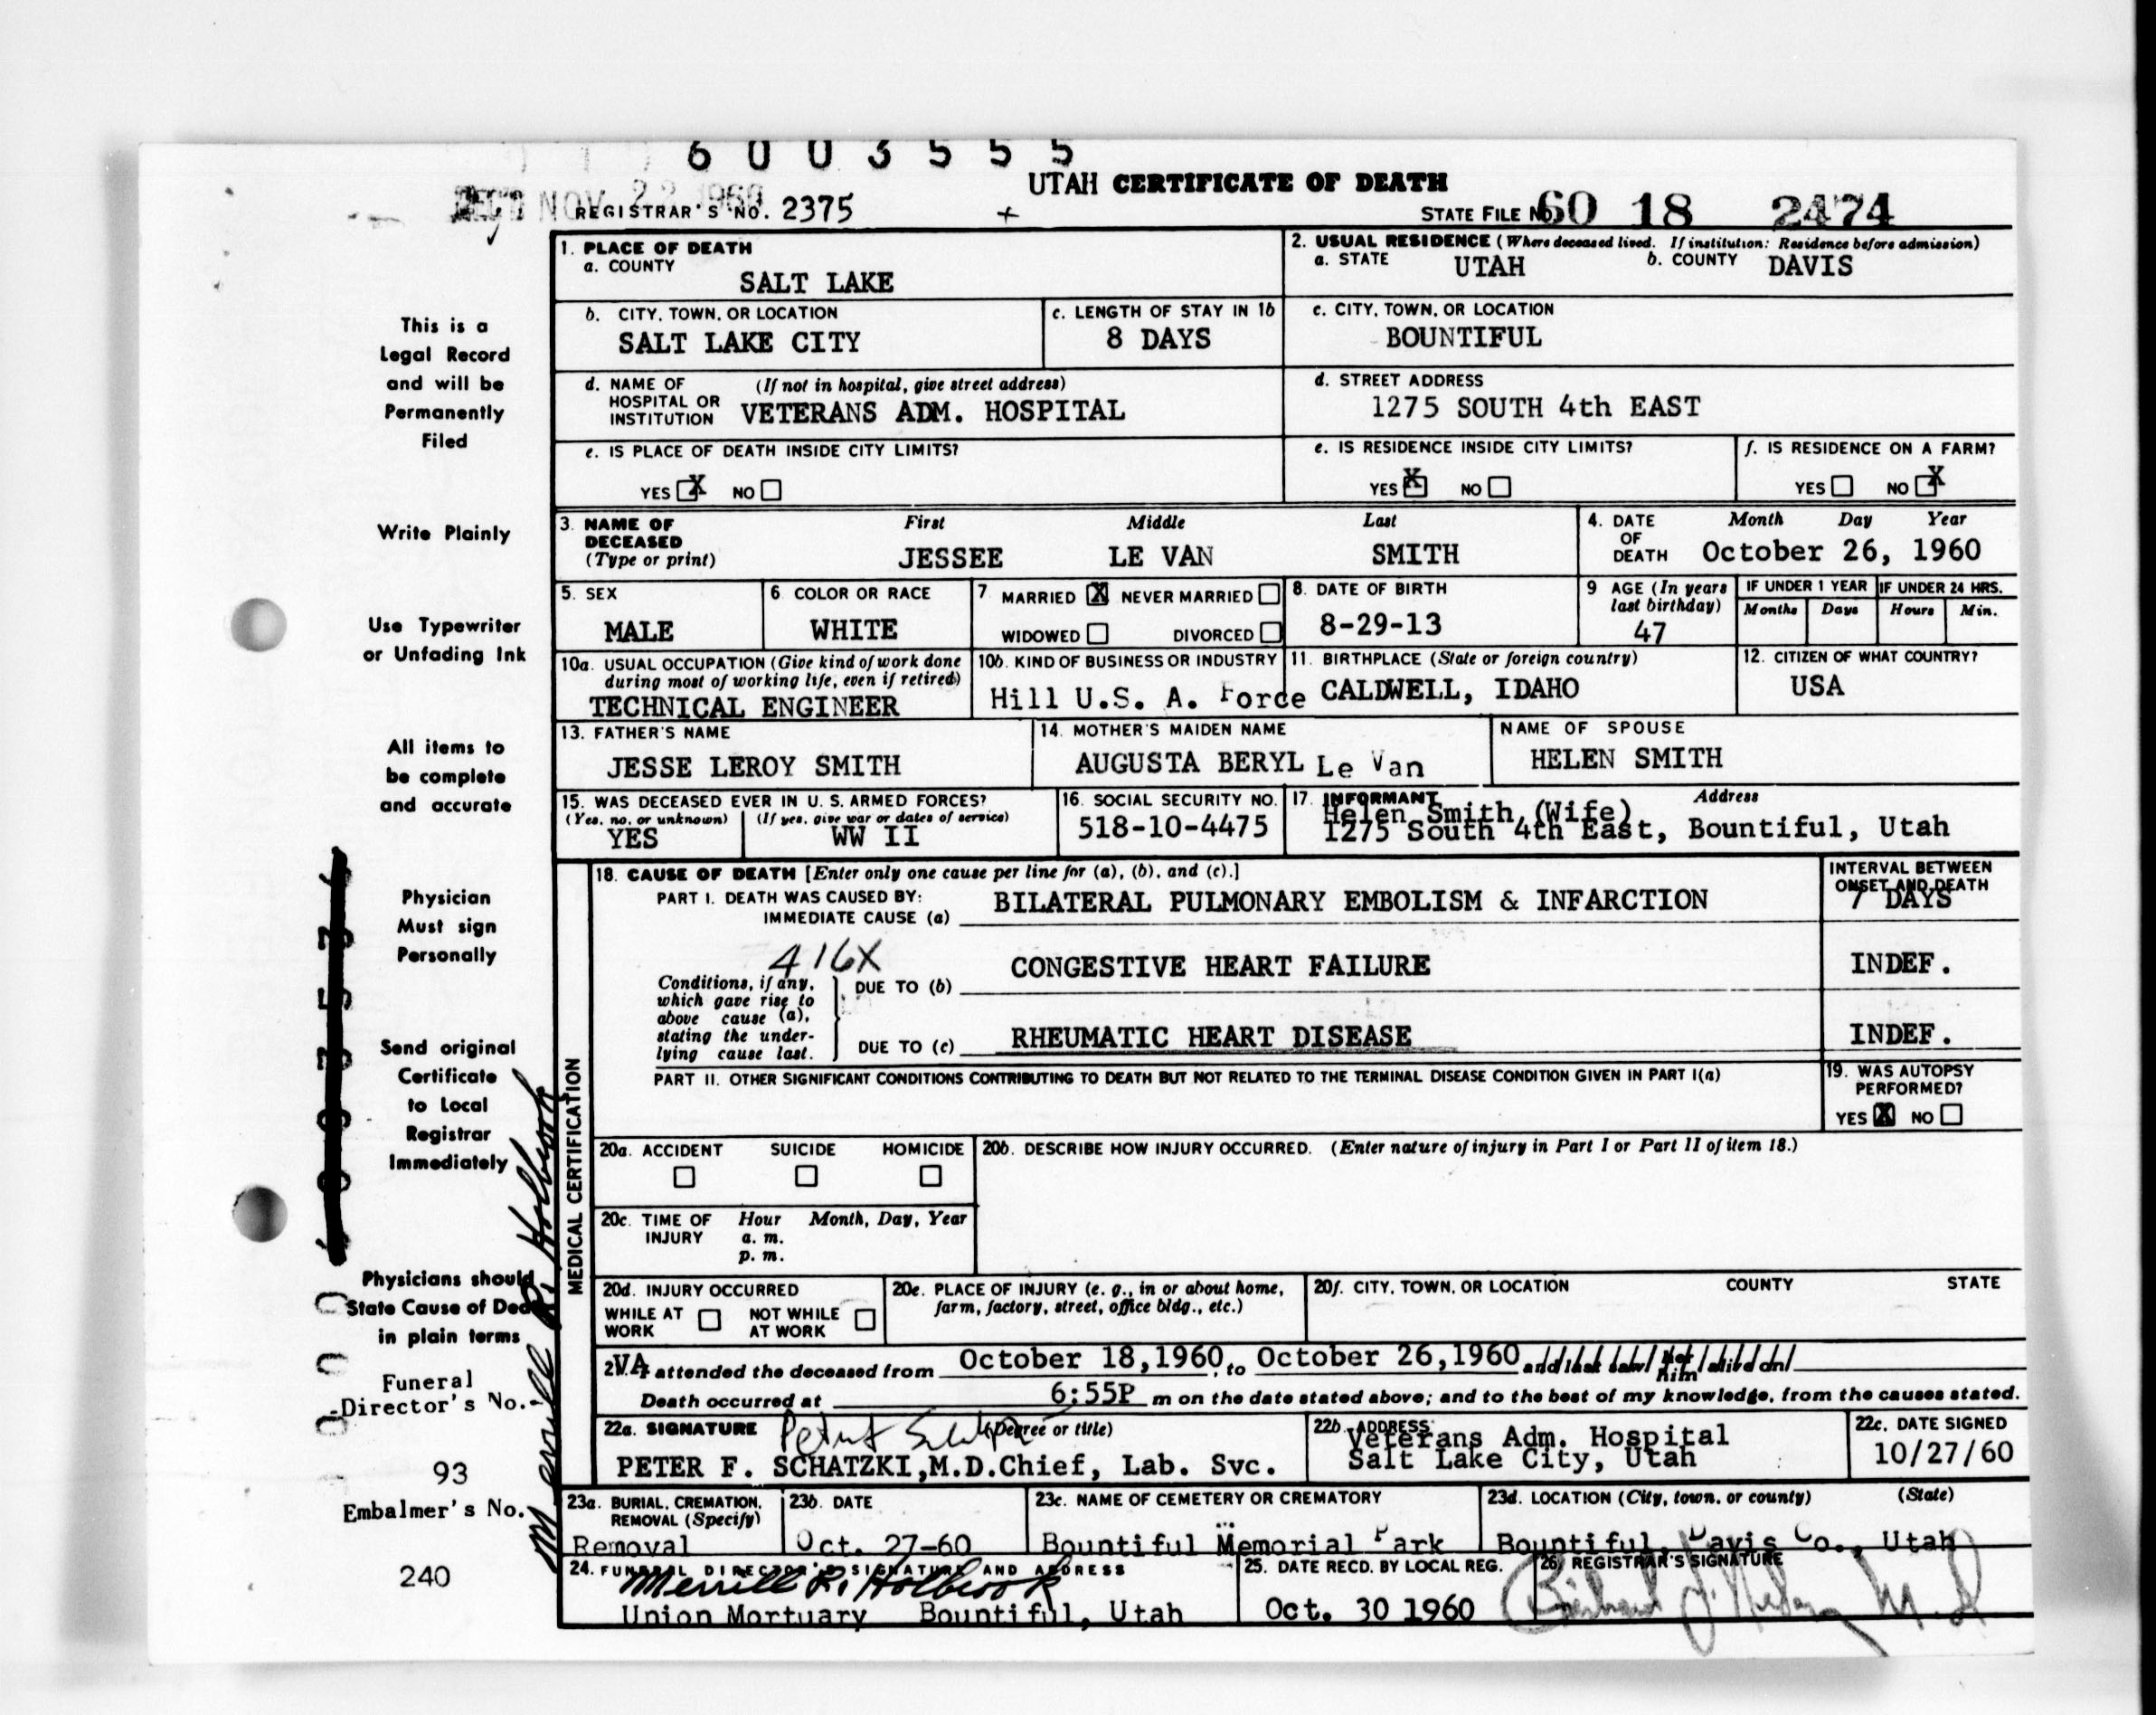 6 0 0 3 5 5 5
REC'D NOV 22 1960
UTAH CERTIFICATE OF DEATH
REGISTRAR'S NO. 2375
+
STATE FILE NO. 60 18 2474
This is a
Legal Record
and will be
Permanently
Filed
Write Plainly
Use Typewriter
or Unfading Ink
All items to
be complete
and accurate
Physician
Must sign
Personally
Send original
Certificate
to Local
Registrar
Immediately
Physicians should
State Cause of Death
in plain terms
Funeral
Director's No.
93
Embalmer's No.
240
Merrill R. Holbrook
1. PLACE OF DEATH
a. COUNTY
SALT LAKE
2. USUAL RESIDENCE (Where deceased lived. If institution: Residence before admission)
a. STATE UTAH b. COUNTY DAVIS
b. CITY, TOWN, OR LOCATION
SALT LAKE CITY
c. LENGTH OF STAY IN 1b
8 DAYS
c. CITY, TOWN, OR LOCATION
BOUNTIFUL
d. NAME OF (If not in hospital, give street address)
HOSPITAL OR
INSTITUTION VETERANS ADM. HOSPITAL
d. STREET ADDRESS
1275 SOUTH 4th EAST
e. IS PLACE OF DEATH INSIDE CITY LIMITS?
YES X NO
e. IS RESIDENCE INSIDE CITY LIMITS?
YES X NO
f. IS RESIDENCE ON A FARM?
YES NO X
3. NAME OF First Middle Last
DECEASED
(Type or print) JESSEE LE VAN SMITH
4. DATE Month Day Year
OF
DEATH October 26, 1960
5. SEX
MALE
6. COLOR OR RACE
WHITE
7. MARRIED X NEVER MARRIED
WIDOWED DIVORCED
8. DATE OF BIRTH
8-29-13
9 AGE (In years
last birthday)
47
IF UNDER 1 YEAR
Months Days
IF UNDER 24 HRS.
Hours Min.
10a. USUAL OCCUPATION (Give kind of work done
during most of working life, even if retired)
TECHNICAL ENGINEER
10b. KIND OF BUSINESS OR INDUSTRY
Hill U.S. A. Force
11. BIRTHPLACE (State or foreign country)
CALDWELL, IDAHO
12. CITIZEN OF WHAT COUNTRY?
USA
13. FATHER'S NAME
JESSE LEROY SMITH
14. MOTHER'S MAIDEN NAME
AUGUSTA BERYL Le Van
NAME OF SPOUSE
HELEN SMITH
15. WAS DECEASED EVER IN U. S. ARMED FORCES?
(Yes, no, or unknown) (If yes, give war or dates of service)
YES WW II
16. SOCIAL SECURITY NO.
518-10-4475
17. INFORMANT Address
Helen Smith (Wife)
1275 South 4th East, Bountiful, Utah
MEDICAL CERTIFICATION
18. CAUSE OF DEATH [Enter only one cause per line for (a), (b), and (c).]
INTERVAL BETWEEN
ONSET AND DEATH
PART I. DEATH WAS CAUSED BY:
IMMEDIATE CAUSE (a) BILATERAL PULMONARY EMBOLISM & INFARCTION 7 DAYS
416X
Conditions, if any,
which gave rise to
above cause (a),
stating the under-
lying cause last.
DUE TO (b) CONGESTIVE HEART FAILURE INDEF.
DUE TO (c) RHEUMATIC HEART DISEASE INDEF.
PART II. OTHER SIGNIFICANT CONDITIONS CONTRIBUTING TO DEATH BUT NOT RELATED TO THE TERMINAL DISEASE CONDITION GIVEN IN PART I(a)
19. WAS AUTOPSY
PERFORMED?
YES X NO
20a. ACCIDENT SUICIDE HOMICIDE
20b. DESCRIBE HOW INJURY OCCURRED. (Enter nature of injury in Part I or Part II of item 18.)
20c. TIME OF Hour Month, Day, Year
INJURY a. m.
p. m.
20d. INJURY OCCURRED
WHILE AT NOT WHILE
WORK AT WORK
20e. PLACE OF INJURY (e. g., in or about home,
farm, factory, street, office bldg., etc.)
20f. CITY, TOWN, OR LOCATION COUNTY STATE
21. VA attended the deceased from October 18,1960, to October 26,1960 and last saw her him alive on
Death occurred at 6:55P m on the date stated above; and to the best of my knowledge, from the causes stated.
22a. SIGNATURE (Degree or title)
PETER F. SCHATZKI,M.D.Chief, Lab. Svc.
22b. ADDRESS
Veterans Adm. Hospital
Salt Lake City, Utah
22c. DATE SIGNED
10/27/60
23a. BURIAL, CREMATION,
REMOVAL (Specify)
Removal
23b. DATE
Oct. 27-60
23c. NAME OF CEMETERY OR CREMATORY
Bountiful Memorial Park
23d. LOCATION (City, town, or county) (State)
Bountiful, Davis Co., Utah
24. FUNERAL DIRECTOR'S SIGNATURE AND ADDRESS
Merrill R. Holbrook
Union Mortuary Bountiful, Utah
25. DATE RECD. BY LOCAL REG.
Oct. 30 1960
26. REGISTRAR'S SIGNATURE
M.D